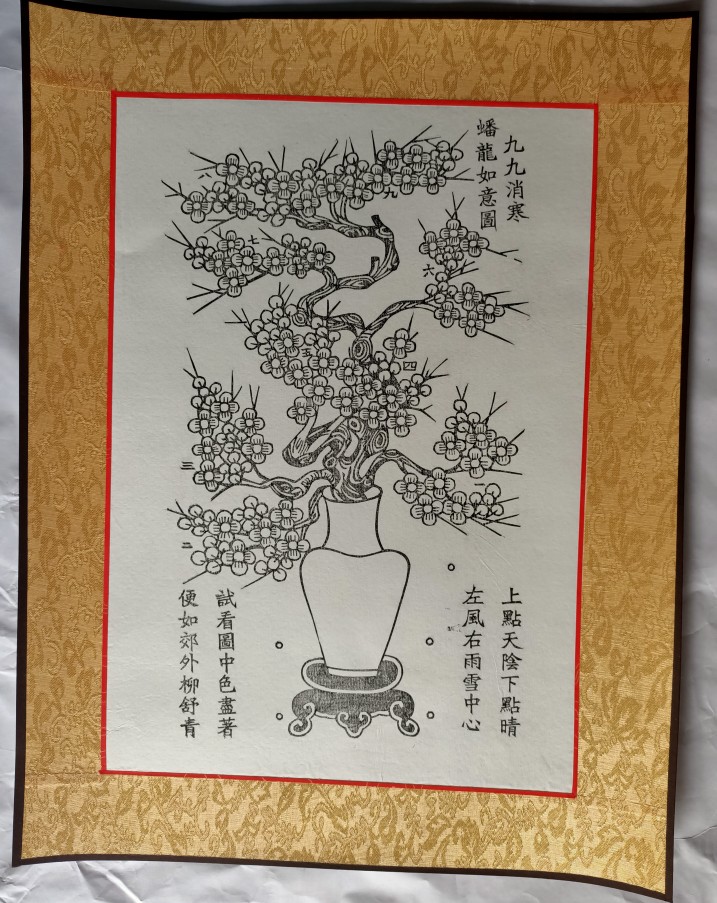 九九消寒
蟠龍如意圖
上點天陰下點晴
左風右雨雪中心
試看圖中色盡著
便如郊外柳舒青
一
二
三
四
五
六
七
八
九